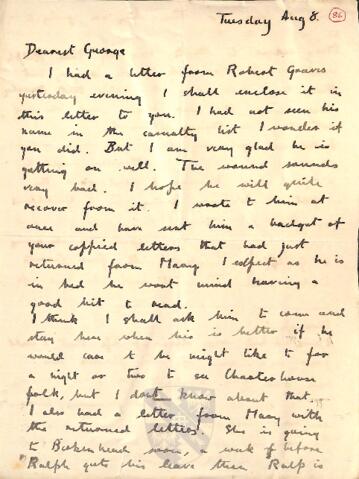 Tuesday Aug 8.
86
Dearest George
I had a letter from Robert Graves
yesterday evening I shall enclose it in
this letter to you. I had not seen his
name in the casualty list I wonder if
you did. But I am very glad he is
getting on well. The wound sounds
very bad. I hope he will quite
recover from it. I wrote to him at
once and have sent him a budget of
your coppied letters that had just
returned from Mary I expect as he is
in bed he wont mind having a
good bit to read.
I think I shall ask him to come and
stay here when his is better if he
would care to he might like to for
a night or two to see Charterhouse
folk, but I dont know about that.
I also had a letter from Mary with
the returned letters. She is going
to Birkenhead soon, a week before
Ralph gets his leave then Ralp is